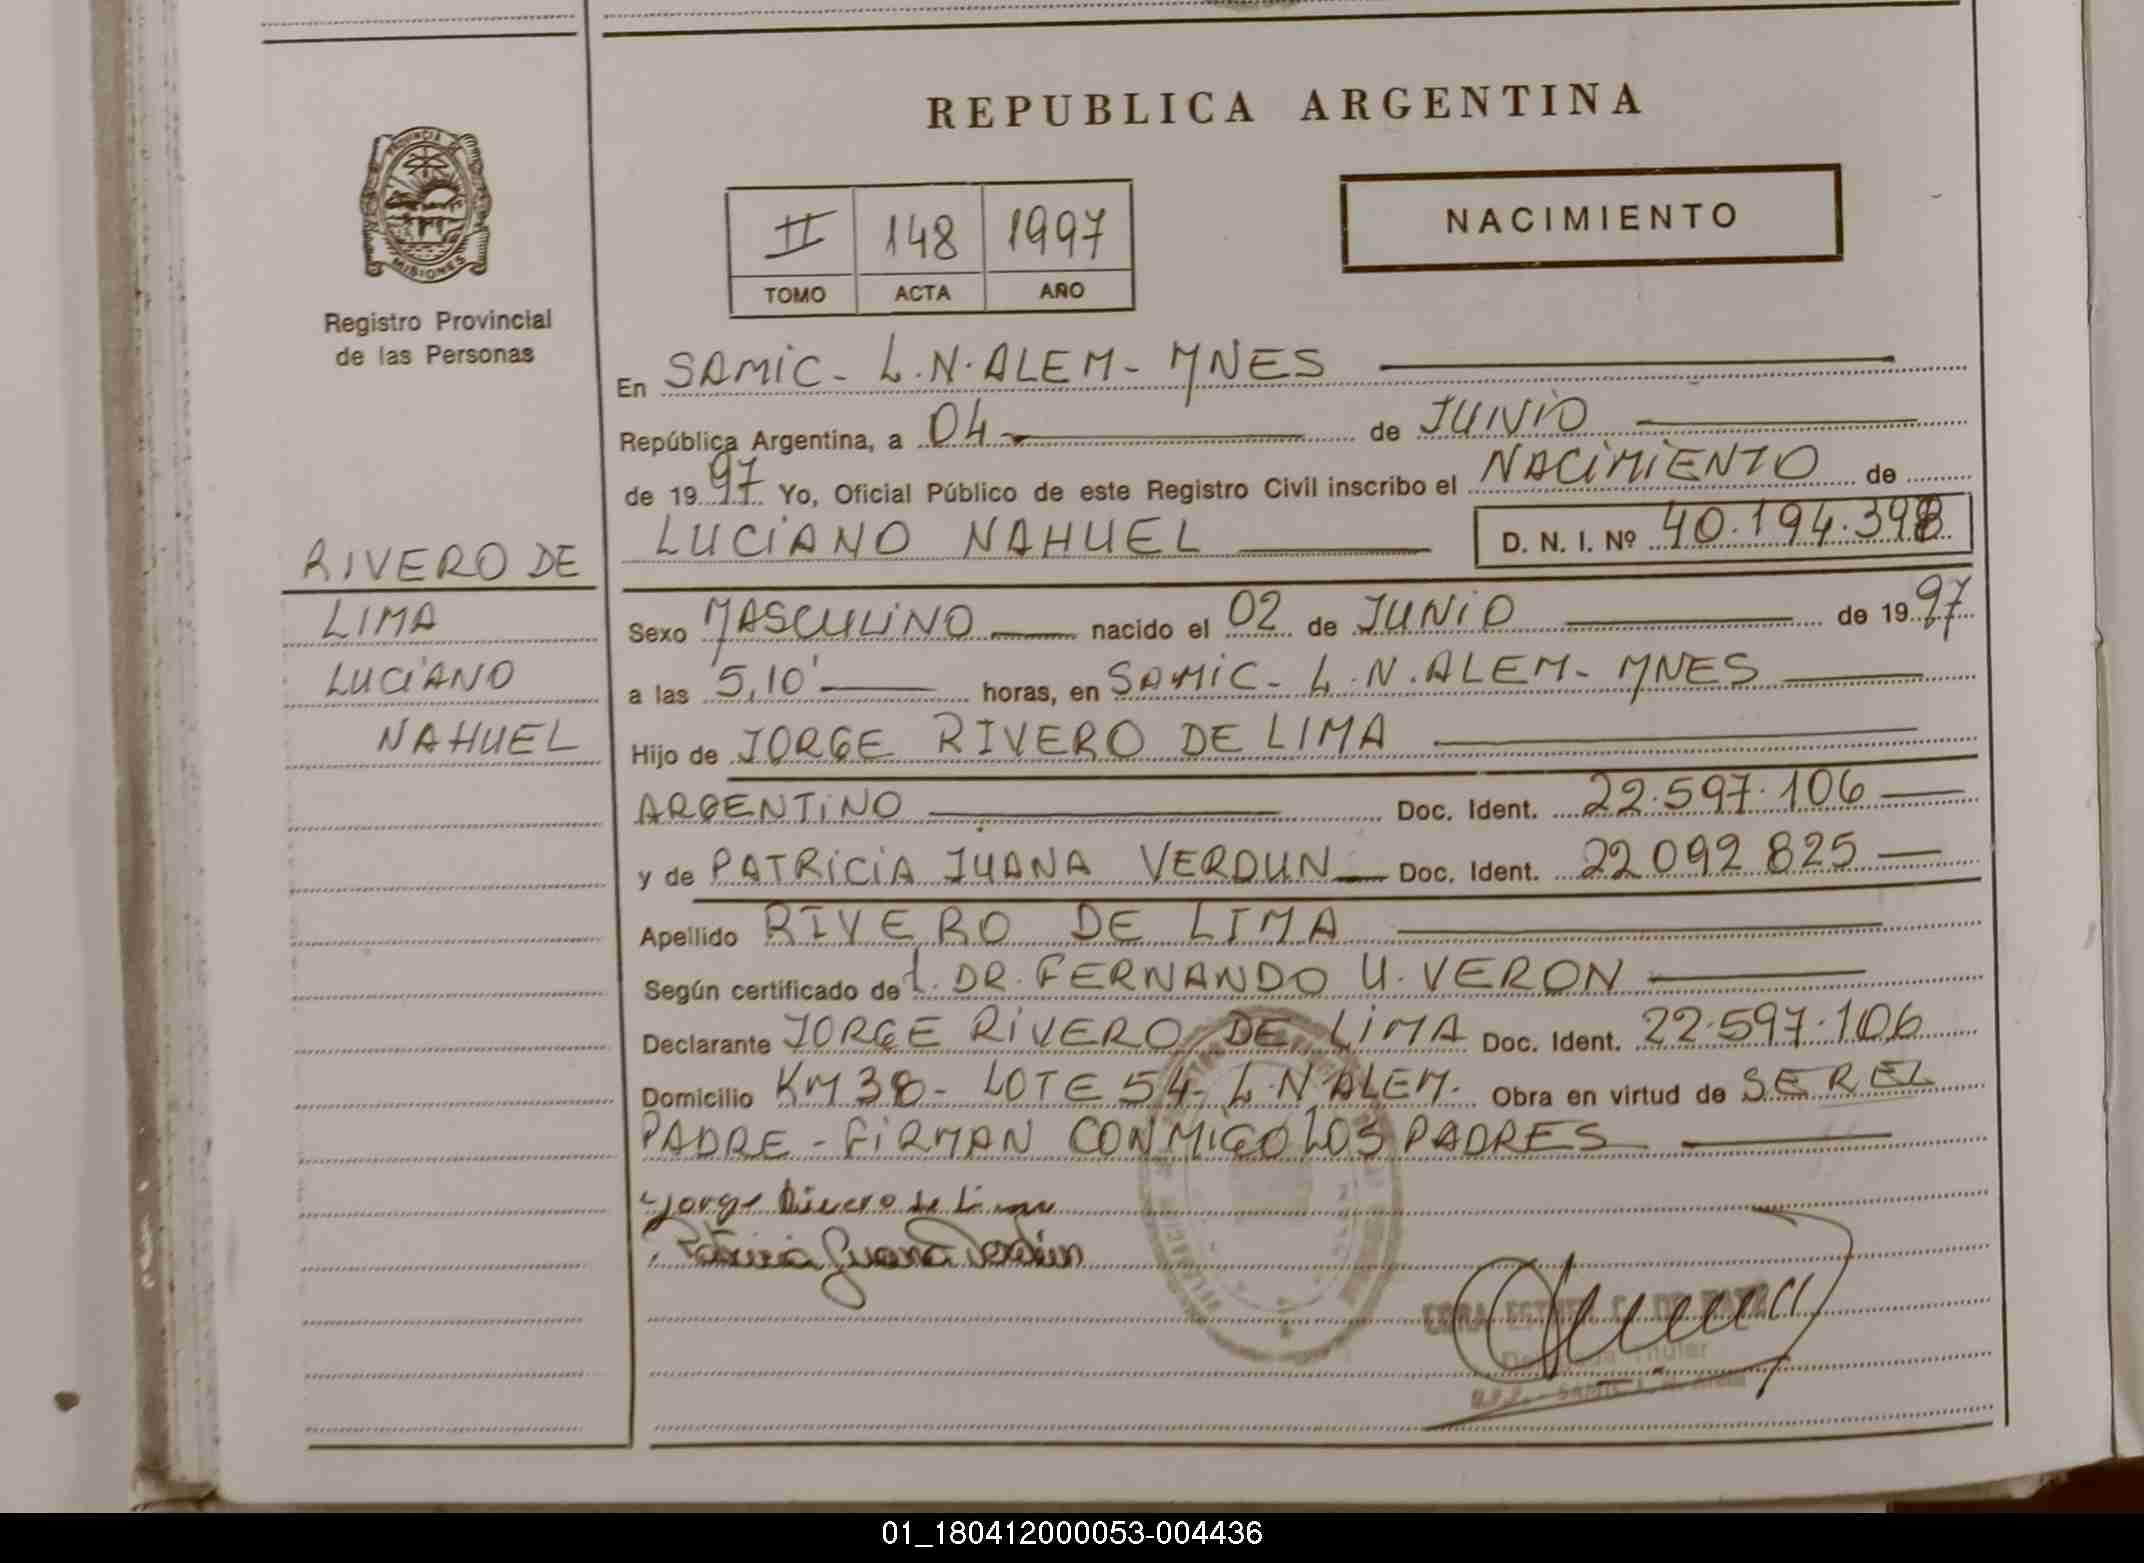 REPUBLICA ARGENTINA
PROVINCIA DE
MISIONES
II 148 1997
TOMO ACTA AÑO
NACIMIENTO
Registro Provincial
de las Personas
En SAMIC - L.N. ALEM - MNES
República Argentina, a 04 de JUNIO
de 1997 Yo, Oficial Público de este Registro Civil inscribo el NACIMIENTO de
LUCIANO NAHUEL D. N. I. Nº 40.194.398
RIVERO DE
LIMA
LUCIANO
NAHUEL
Sexo MASCULINO nacido el 02 de JUNIO de 1997
a las 5,10' horas, en SAMIC - L.N. ALEM - MNES
Hijo de JORGE RIVERO DE LIMA
ARGENTINO Doc. Ident. 22.597.106
y de PATRICIA JUANA VERDUN Doc. Ident. 22092825
Apellido RIVERO DE LIMA
Según certificado del. DR. FERNANDO U. VERON
Declarante JORGE RIVERO DE LIMA Doc. Ident. 22.597.106
Domicilio KM 38 - LOTE 54 - L.N ALEM. Obra en virtud de SER EL
PADRE - FIRMAN CONMIGO LOS PADRES
Jorge Rivero de Lima
Patricia Juana Verdún
01_180412000053-004436